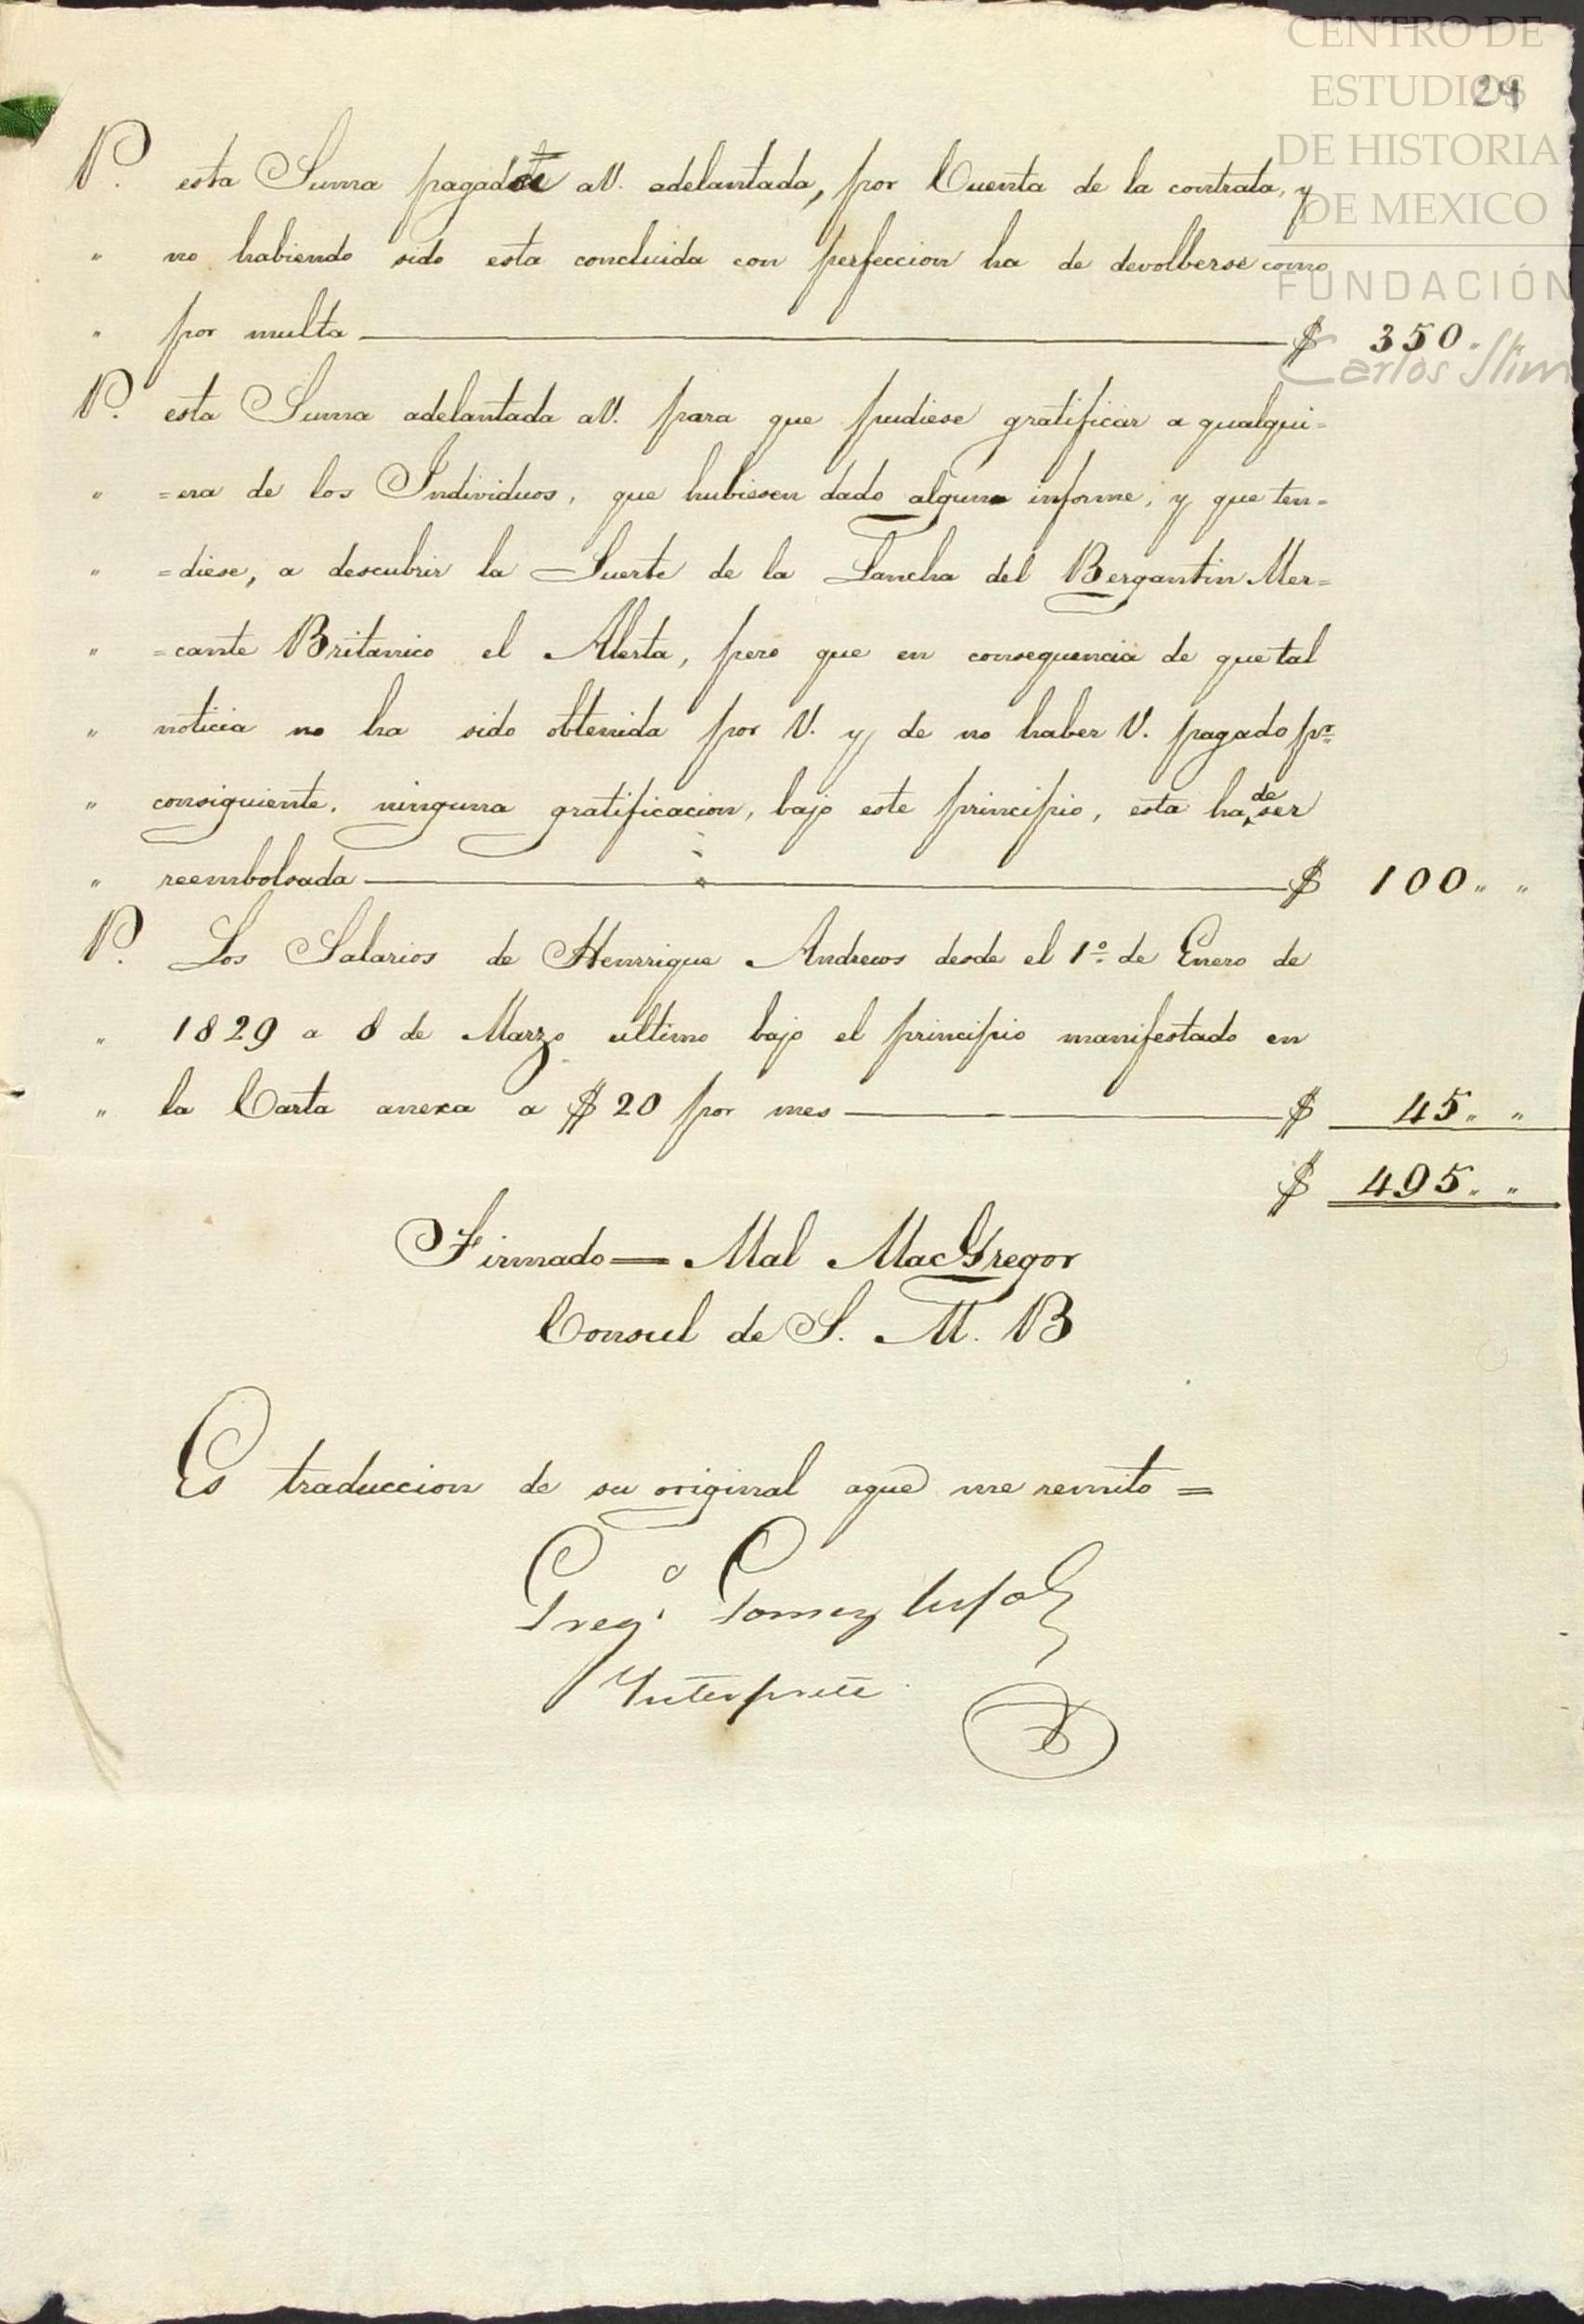 CENTRO DE
ESTUDIOS
DE HISTORIA
DE MEXICO
FUNDACIÓN
Carlos Slim
24
P. esta Suma pagada a V. adelantada, por Cuenta de la contrata, y
" no habiendo sido esta concluida con perfeccion ha de devolberse como
" por multa $ 350. "
P. esta Suma adelantada a V. para que pudiese gratificar a qualqui=
" =era de los Individuos, que hubiesen dado algun informe, y que ten=
" =diese, a descubrir la Suerte de la Lancha del Bergantin Mer=
" =cante Britanico el Alerta, pero que en consequencia de que tal
" noticia no ha sido obtenida por V. y de no haber V. pagado pr.
" consiguiente, ninguna gratificacion, bajo este principio, esta ha de ser
" reembolsada $ 100 " "
P. Los Salarios de Henrrique Andrews desde el 1º de Enero de
" 1829 a 8 de Marzo ultimo bajo el principio manifestado en
" la Carta anexa a $ 20 por mes $ 45 " "
$ 495 " "
Firmado = Mal MacGregor
Consul de S. M. B
Es traduccion de su original aque me remito =
Grego. Gomez
Interprete